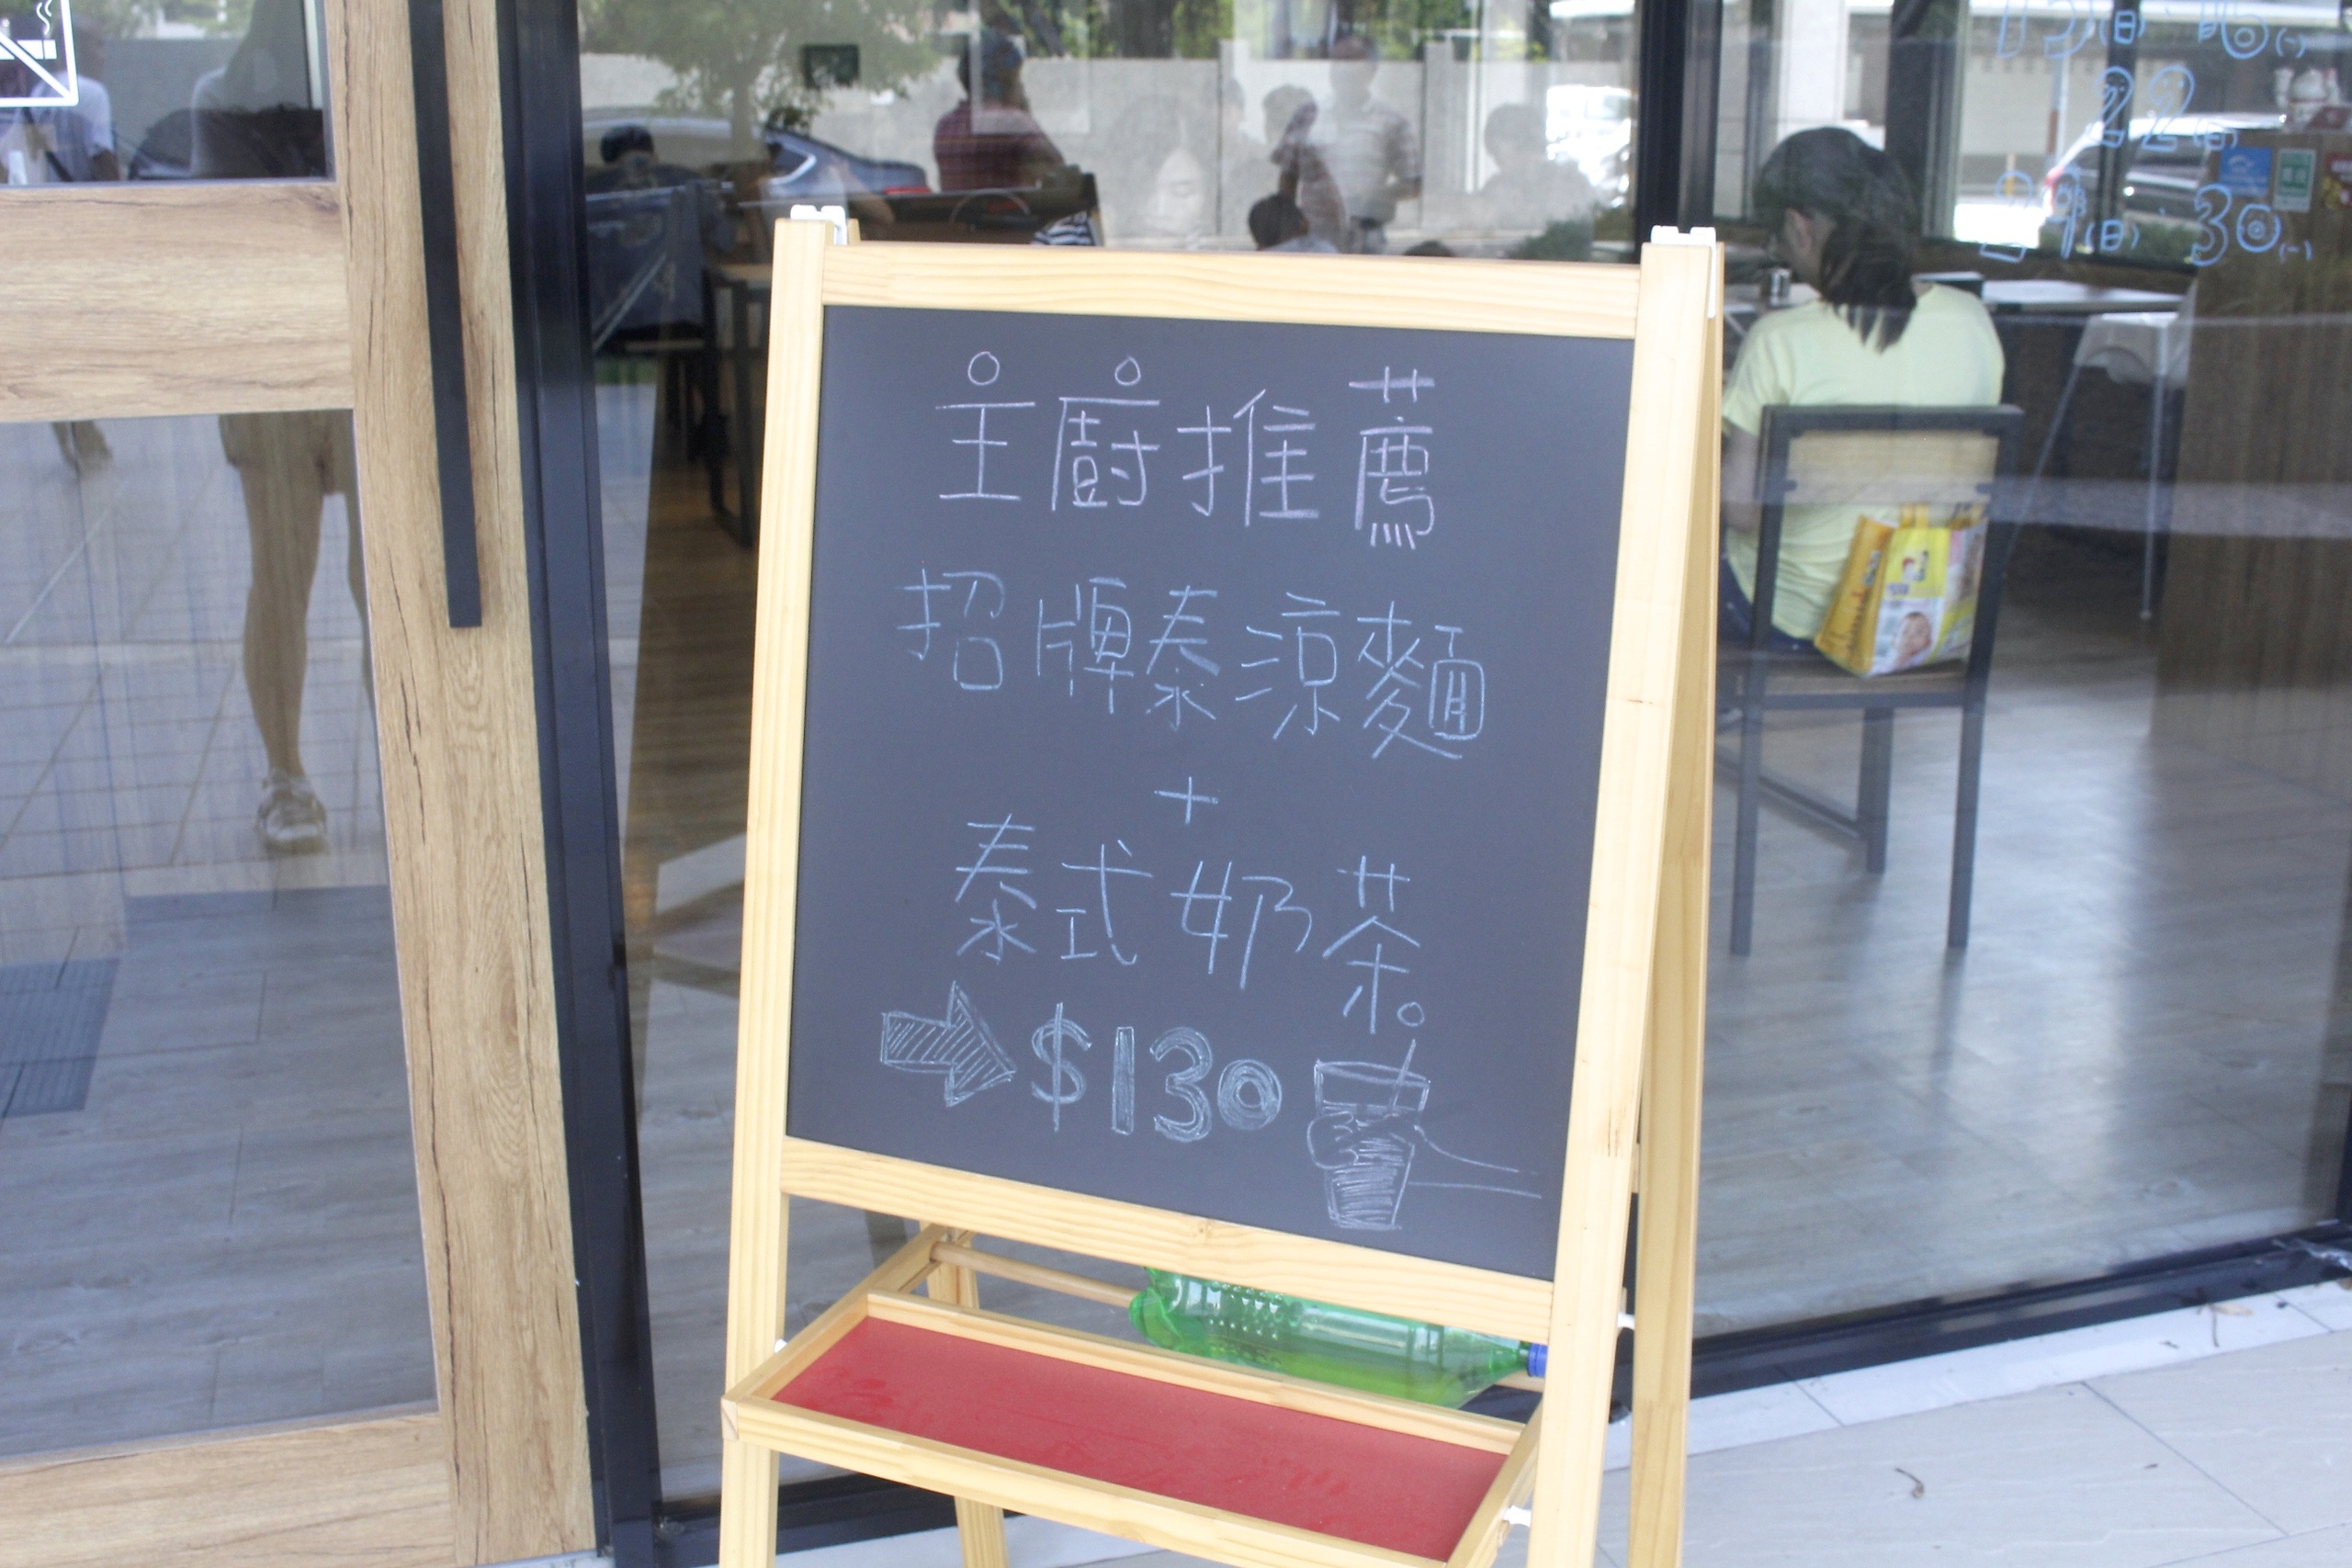 主廚推薦
招牌泰涼麵
+
泰式奶茶。
$130
15(日) 16(一)
22(日)
29(日) 30(一)